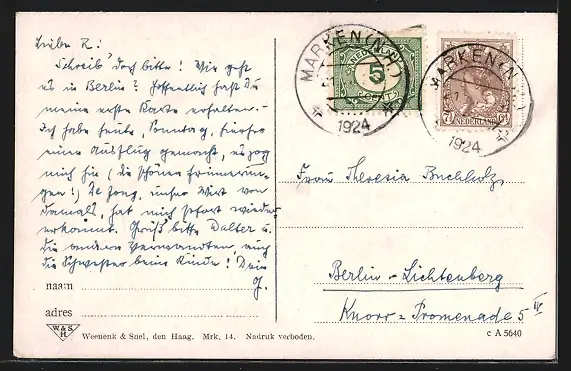 Liebe R:
Schreib' doch bitte! Wie geht
es in Berlin? Hoffentlich hast Du
meine erste Karte erhalten.-
Ich habe heute, Sonntag, hierher
einen Ausflug gemacht, es zog
mich hin (die schönen Erinnerun-
gen!) De Jong, unser Wirt von
damals, hat mich sofort wieder
erkannt. Grüß bitte Walter u.
die anderen Verwandten, auch
die Schwester beim Kinde! Dein
J.
naam
adres
W&S
H
Weenenk & Snel, den Haag. Mrk, 14. Nadruk verboden.
MARKEN (N.H.)
1924
5
CENT
MARKEN (N.
1924
7½
NEDERLAND
Frau Theresia Buchholz,
Berlin-Lichtenberg
Knorr=Promenade 5 IV
c A 5640